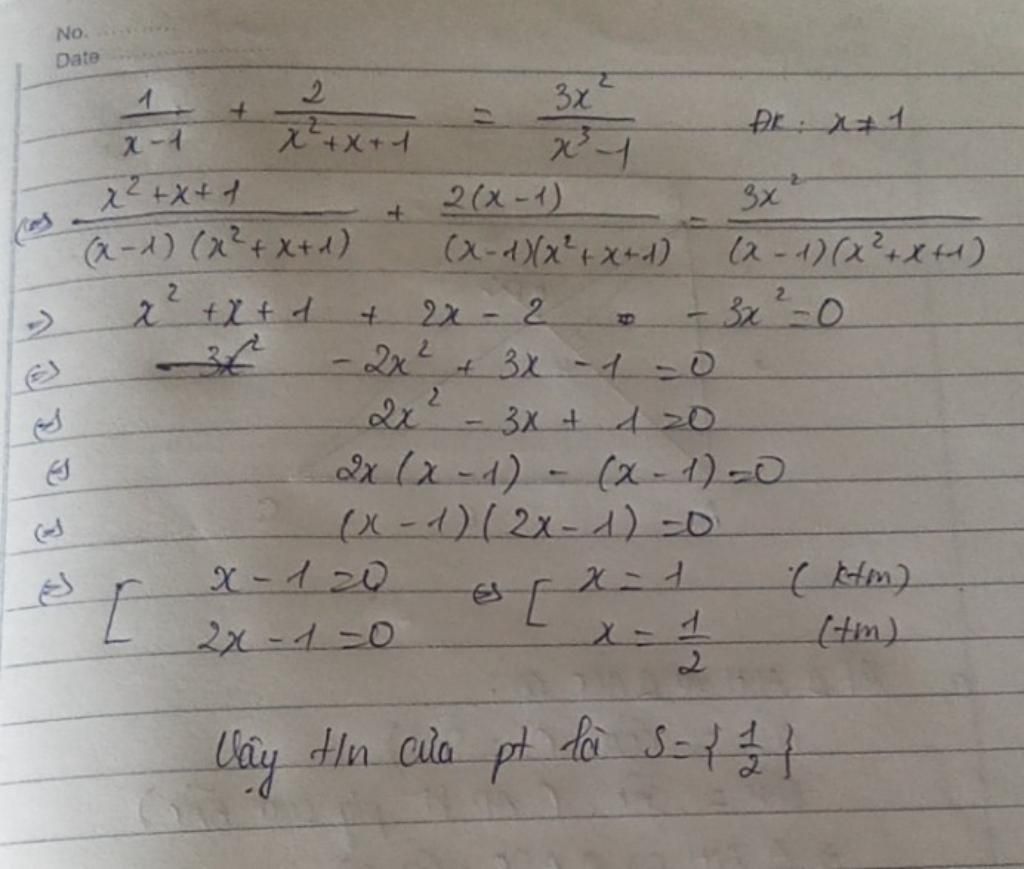 No.
Date
1/(x-1) + 2/(x²+x+1) = 3x²/(x³-1) ĐK: x≠1
(=) (x²+x+1)/((x-1)(x²+x+1)) + 2(x-1)/((x-1)(x²+x+1)) = 3x²/((x-1)(x²+x+1))
=> x²+x+1 + 2x-2 - 3x²=0
(=) -2x² + 3x - 1 = 0
(=) 2x² - 3x + 1 = 0
(=) 2x(x-1) - (x-1) = 0
(=) (x-1)(2x-1) = 0
(=) [ x-1=0 (=) [ x = 1 (ktm)
2x-1=0 x = 1/2 (tm)
Vậy t/n của pt là S={1/2}